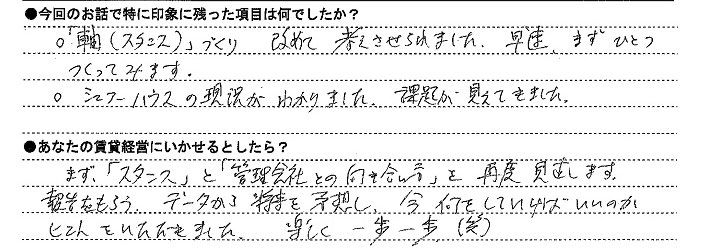 ●今回のお話で特に印象に残った項目は何でしたか?
○「軸(スタンス)」づくり 改めて考えさせられました。早速、まずひとつ
つくってみます。
○ シェアーハウスの現況がわかりました。課題が見えてきました。
●あなたの賃貸経営にいかせるとしたら?
まず、「スタンス」と「管理会社との向き合い方」を再度見直します。
報告をもらう。データから将来を予想し、今何をしていけばいいのか
ヒントをいただきました。楽しく一歩一歩(笑)